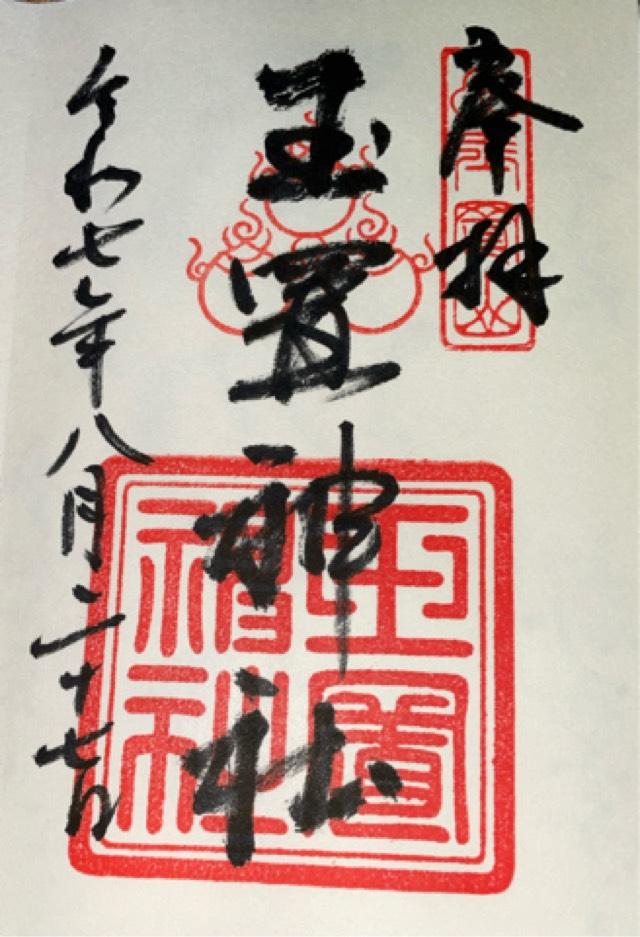 奉拝
玉置神社
令和七年八月二十七日
玉置
神社